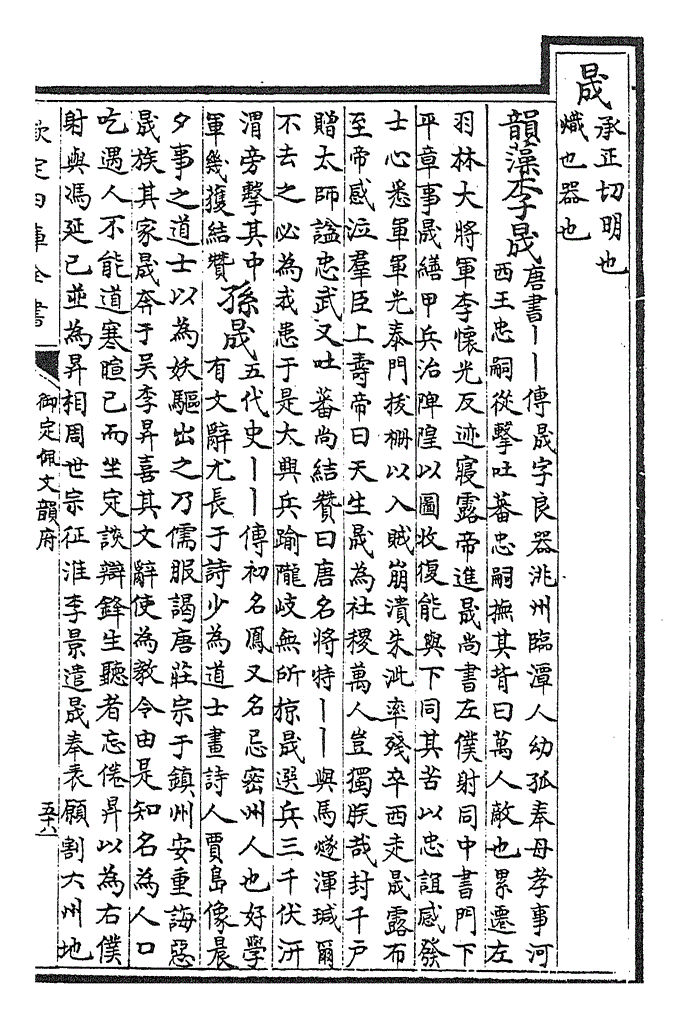 晟
承正切明也
熾也器也
韻藻李晟
唐書丨丨傳晟字良器洮州臨潭人幼孤奉母孝事河
西王忠嗣從擊吐蕃忠嗣撫其背曰萬人敵也累遷左
羽林大將軍李懷光反迹寖露帝進晟尚書左僕射同中書門下
平章事晟繕甲兵治陴隍以圖收復能與下同其苦以忠誼感發
士心悉軍軍光泰門拔柵以入賊崩潰朱泚率殘卒西走晟露布
至帝感泣羣臣上壽帝曰天生晟為社稷萬人豈獨朕哉封千戶
贈太師諡忠武又吐蕃尚結贊曰唐名將特丨丨與馬燧渾瑊爾
不去之必為我患于是大興兵踰隴岐無所掠晟選兵三千伏汧
渭旁擊其中
軍幾獲結贊
孫晟
五代史丨丨傳初名鳳又名忌密州人也好學
有文辭尤長于詩少為道士畫詩人賈島像晨
夕事之道士以為妖驅出之乃儒服謁唐莊宗于鎮州安重誨惡
晟族其家晟奔于吳李昇喜其文辭使為教令由是知名為人口
吃遇人不能道寒暄已而坐定談辯鋒生聽者忘倦昇以為右僕
射與馮延己並為昇相周世宗征淮李景遣晟奉表願割六州地
欽定四庫全書
御定佩文韻府
五十八